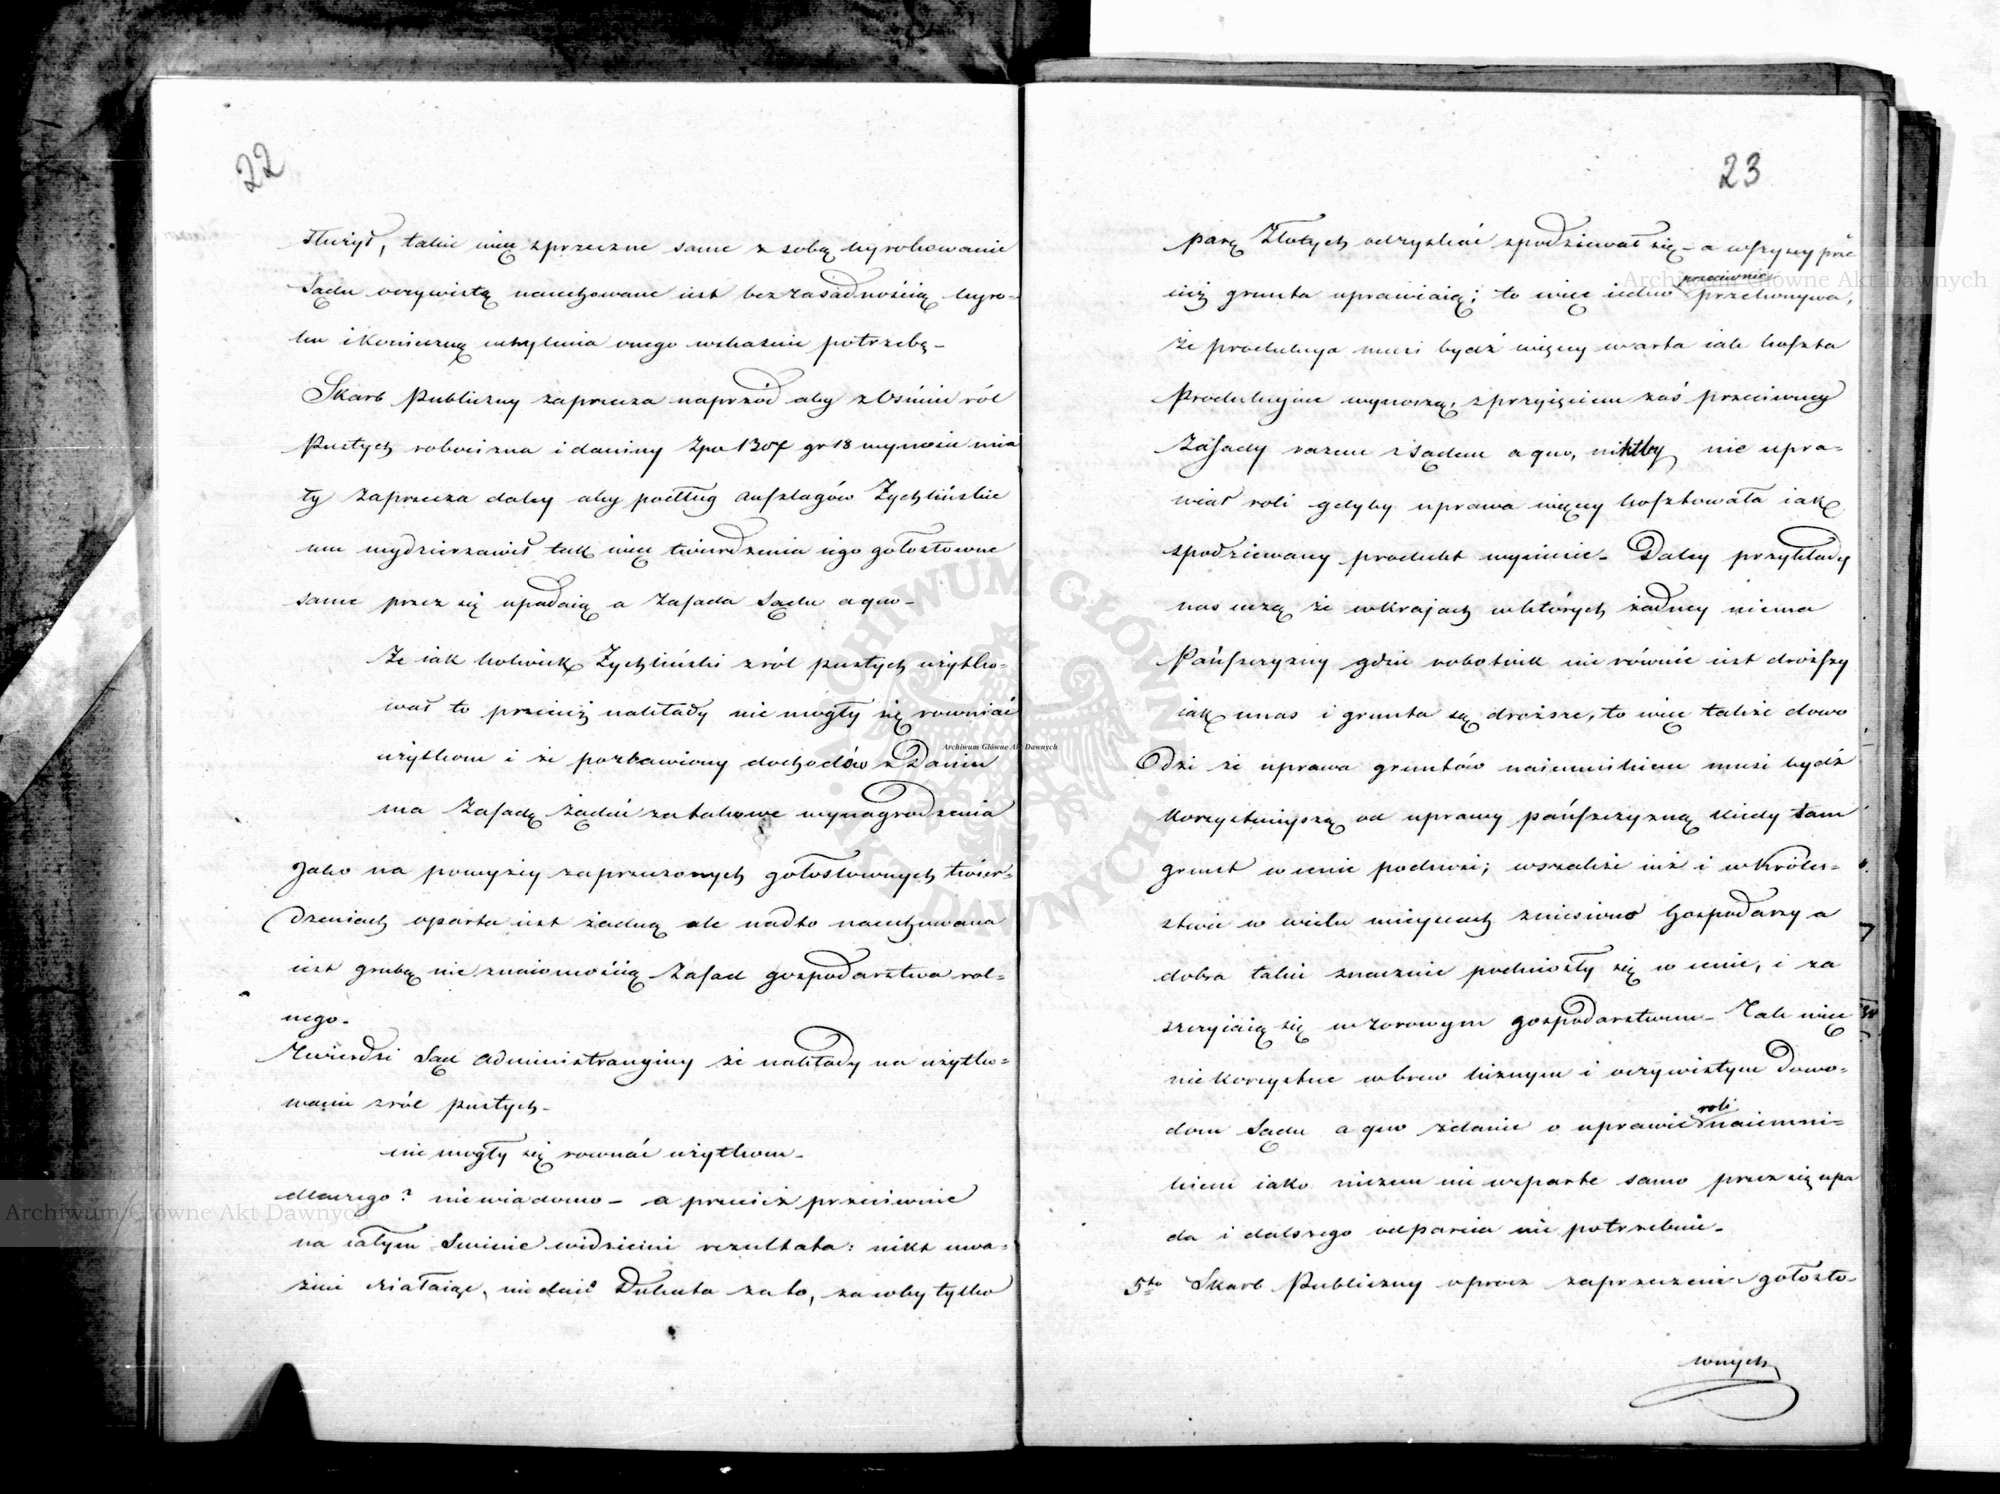 22
służył, takie więc sprzeczne same z sobą wyrokowanie
Sądu oczywistą nacechowane iest bezzasadnością wyro-
ku i konieczną uchylenia onego wskaźnie potrzebę –
Skarb Publiczny zaprzecza naprzód aby z ośmiu ról
Pustych robocizna i daniny Zpo 1307 gr 18 wynosić mia
ły zaprzecza daley aby podług Anszlagów Żychlińskie
mu wydzierżawił tak więc twierdzenia iego gołosłowne
same przez się upadaią a zasada Sądu a quo –
Że iak kolwiek Żychliński z ról pustych użytko-
wał to przecież nakłady nie mogły się rownać
użytkom i że pozbawiony dochodów z Danin
ma zasadę żądać za takowe wynagrodzenia
Jako na powyżey zaprzeczonych gołosłownych twier-
dzeniach oparta iest żadną ale nadto nacechowana
iest grubą nieznaiomością zasad gospodarstwa rol-
nego –
Twierdzi Sąd Administracyiny że nakłady na użytko-
wanie z ról pustych –
nie mogły się rownać użytkom –
dlaczego? niewiadomo – a przecież przeciwnie
na całym świecie widziemy rezultata: nikt uwa-
żnie działaiąc, nie dał Dukata za to, za coby tylko
23
parę Złotych odzyskać spodziewał się – a wszyscy prze
cież grunta uprawiaią; to więc iedno przeciwnie przekonywa,
że produkcya musi bydź więcey warta iak koszta
Produkcyine wynoszą, z przyięciem zaś przeciwney
zasady razem z Sądem a quo, niktby nie upra-
wiał roli gdyby uprawa więcey kosztowała iak
spodziewany produkt wyniesie – Daley przykłady
nas uczą że w krajach w których żadney niema
Pańszczyzny gdzie robotnik nie równie iest droższy
iak u nas i grunta są droższe, to więc także dowo
dzi że uprawa gruntów naiemnikiem musi bydź
korzystnieyszą od uprawy pańszczyzną kiedy tam
grunt w cenie podnosi; wszakże iuż i w Króles-
stwie w wielu mieyscach zniesiono Gospodarzy a
dobra takie znacznie podniosły się w cenie, i za
szczycaią się wzorowym gospodarstwem – Tak więc
niekorzystne wbrew licznym i oczywistym Dowo-
dom Sądu a quo zdanie o uprawie roli naiemni-
kiem iako niczem nie wsparte samo przez się upa
da i dalszego odparcia nie potrzebuie –
5to Skarb Publiczny oprocz zaprzeczenia gołosło-
wnych
Archiwum Główne Akt Dawnych
Archiwum Główne Akt Dawnych
Archiwum Główne Akt Dawnych
ARCHIWUM GŁÓWNE AKT DAWNYCH